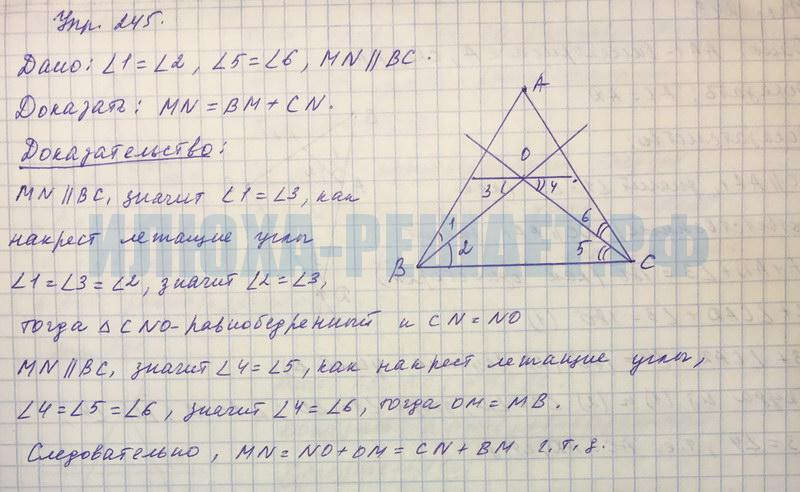 Упр. 245.
Дано: ∠1=∠2, ∠5=∠6, MN∥BC.
Доказать: MN=BM+CN.
Доказательство:
MN∥BC, значит ∠1=∠3, как
накрест лежащие углы
∠1=∠3=∠2, значит ∠2=∠3,
тогда △CNO-равнобедренный и CN=NO
MN∥BC, значит ∠4=∠5, как накрест лежащие углы,
∠4=∠5=∠6, значит ∠4=∠6, тогда OM=MB.
Следовательно, MN=NO+OM=CN+BM ч.т.д.
A
O
3 4
1 6
2 5
B C
ИЛЮХА-РЕШАЕТ.РФ